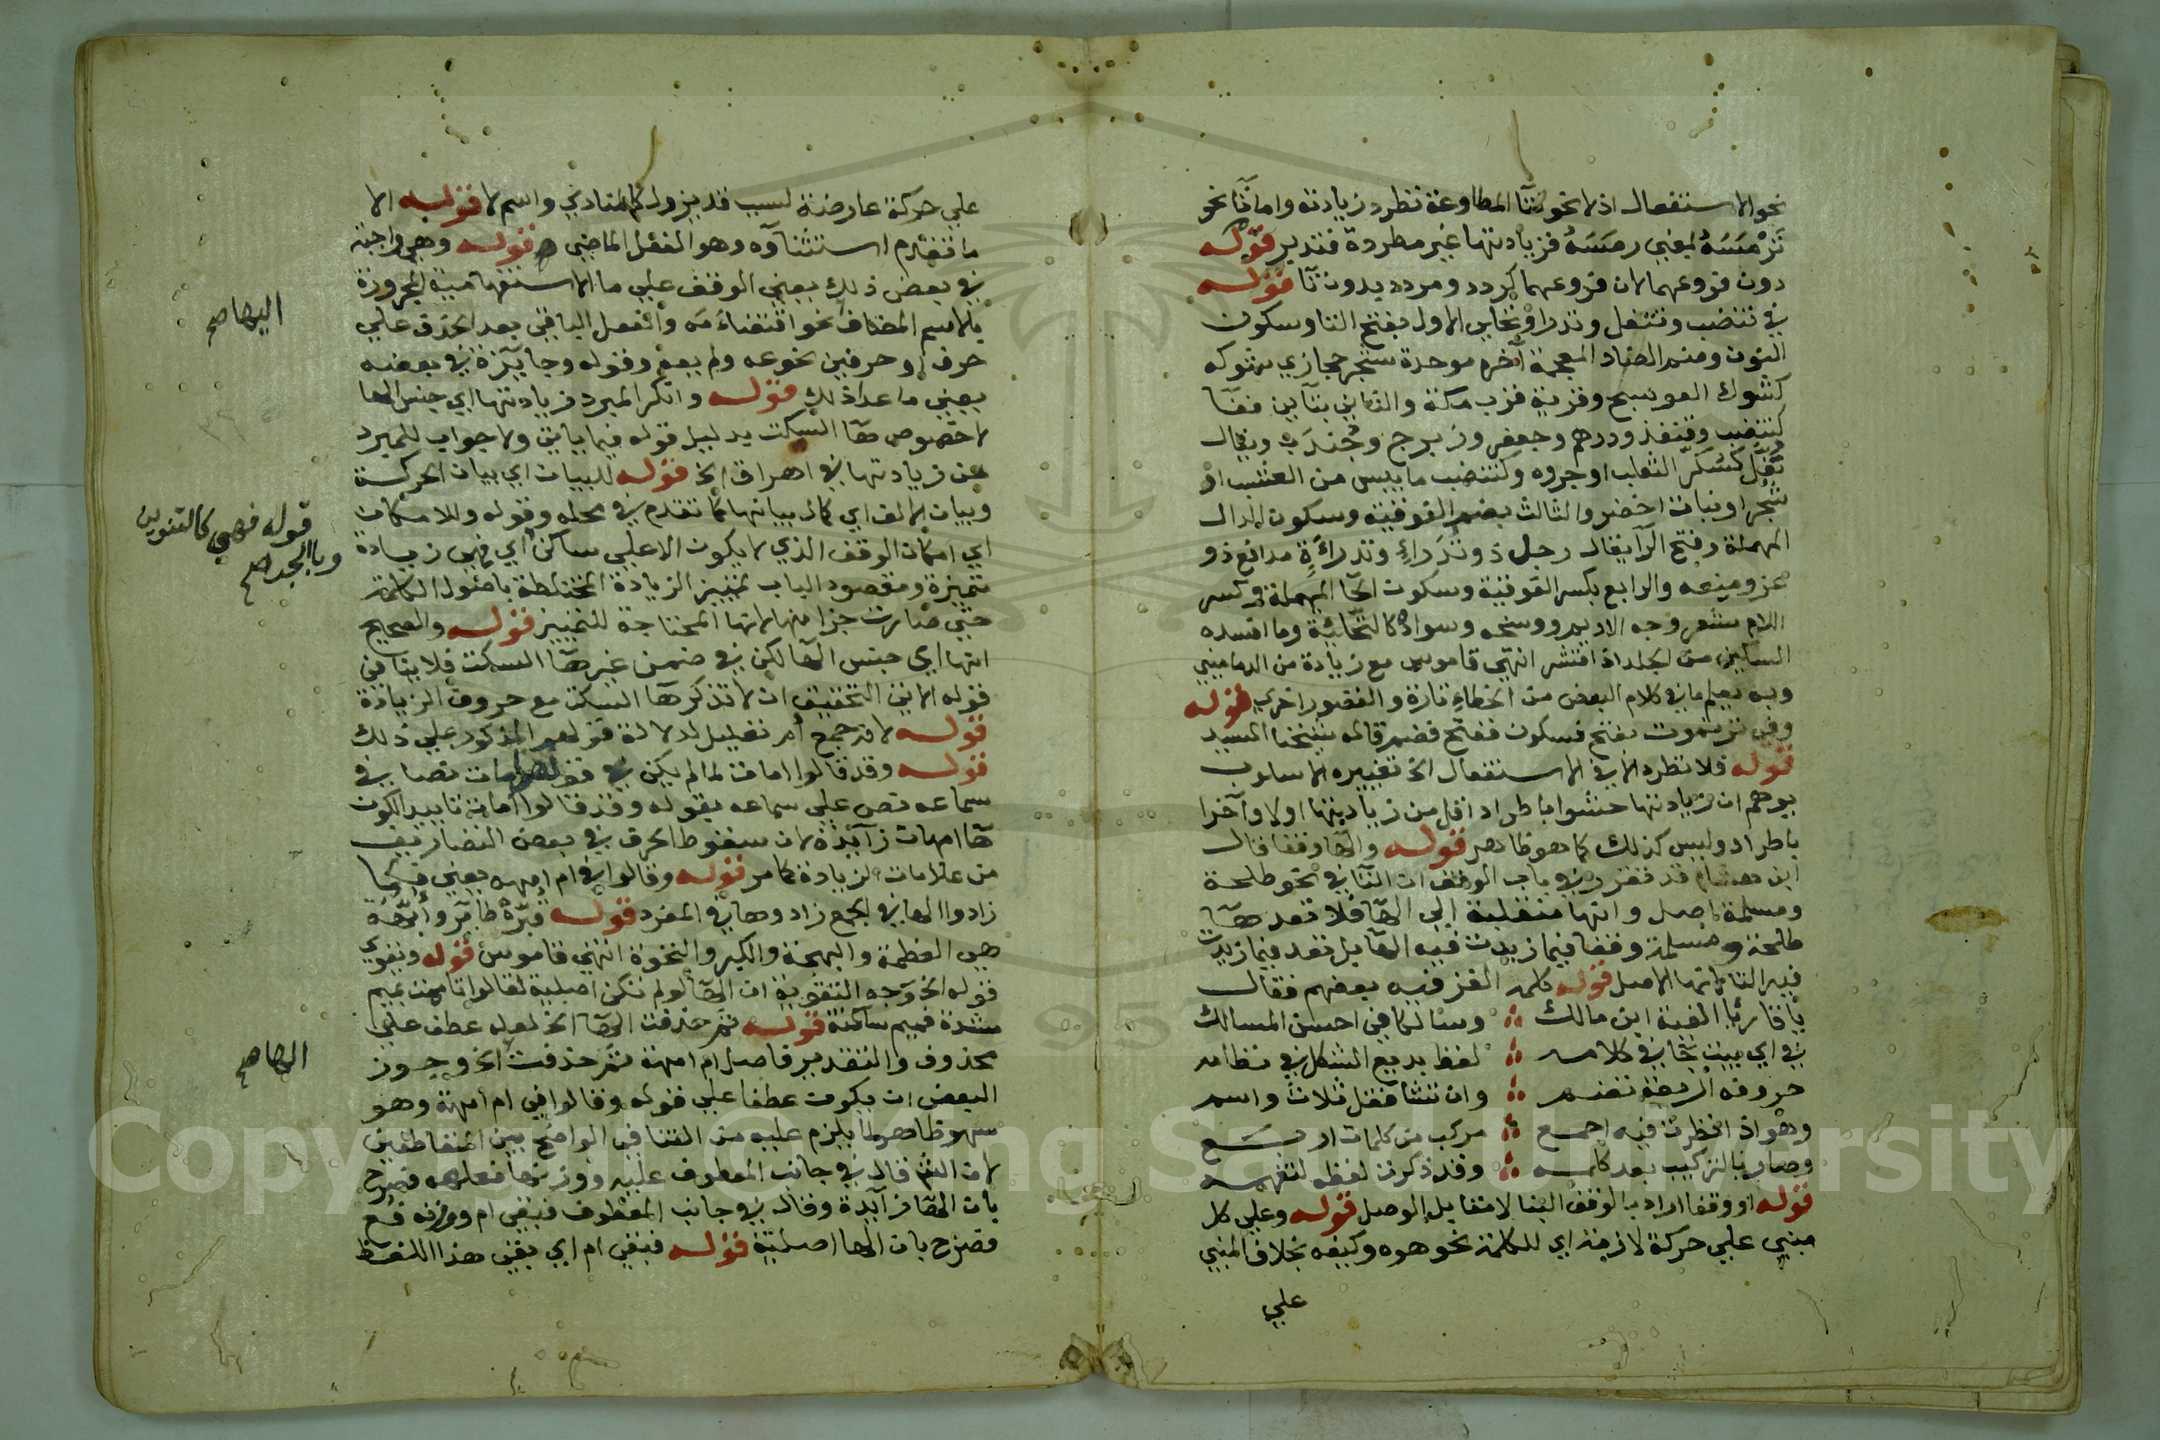 نحو الاستفعال اذ لا نحو تآ المطاوعة تطرد زيادته واما تآ نحو
تَرْمَسَهُ بمعني رمسه فزيادتها غير مطردة فتدبر قوله
دون فروعهما لان فروعهما كردد ومردد بدون تآ قوله
في تنضب وتتفل وتدرا وتحلئ الاول بفتح التا وسكون
النون وضم الضاد المعجمة آخره موحدة شجر حجازي شوكه
كشوك العوسج وقرية قرب مكة والثاني بتآين ففآ
كتنضب وقنفذ ودرهم وجعفر وزبرج وجُندَب ويقال
تُفَّل كسُكَّر الثعلب او جروه وكتنضب ما يبس من العشب او
شجر او نبات اخضر والثالث بضم الفوقية وسكون الدال
المهملة وفتح الرآ يقال رجل ذو تُدْرَاءٍ وتدراءَةٍ مدافع ذو
عز ومنعه والرابع بكسر الفوقية وسكون الحآ المهملة وكسر
اللام شعر وجه الاديم ووسخه وسواده كالتحلئة وما افسده
السكين من الجلد اذا قشر انتهي قاموس مع زيادة من الدماميني
وبه يعلم ما في كلام البعض من الخطاء تارة والقصور اخري قوله
وفي ترنموت بفتح فسكون ففتح فضم قاله شيخنا السيد
قوله فلا تطرد الا في الاستفعال الخ تغييره الاسلوب
يوهم ان زيادتها حشوا باطراد اقل من زيادتها اولا وآخرا
باطراد وليس كذلك كما هو ظاهر قوله والهآ وقفا قال
ابن هشام قد تقرر في باب الوقف ان التآ في نحو طلحة
ومسلمة اصل وانها منقلبة الي الهآ فلا تعد هآ
طلحة ومسلمة وقفا فيما زيدت فيه الهآ بل تعد فيما زيدت
فيه التا لانها الاصل قوله كلمه الغز فيه بعضهم فقال
يا قاريا الفية ابن مالك وسالكا في احسن المسالك
في اي بيت جا في كلامه لفظ بديع الشكل في نظامه
حروفه اربعة تضم وان تشا فقل ثلاث واسم
وهو اذا نظرت فيه اجمع مركب من كلمات اربع
وصار بالتركيب بعد كلمه وقد ذكرت لفظه لتفهمه
قوله او وقفا اراد بالوقف البنا لا مقابل الوصل قوله وعلي كل
مبني علي حركة لازمة اي للكلمة نحو هوه وكيفه بخلاف المبني
علي
علي حركة عارضة لسبب قد يزول كالمنادي واسم لا قوله الا
ما تقدم استثناوه وهو الفعل الماضي قوله وهي واجبة
في بعض ذلك يعني الوقف علي ما الاستفهامية المجرورة
بالاسم المضاف نحو اقتضاءَ مَه والفعل الباقي بعد الحذف علي
حرف او حرفين نحو عه ولم يعه وقوله وجايزة في بعضه
يعني ما عدا ذلك قوله وانكر المبرد زيادتها اي جنس الها
لا خصوص هآ السكت بدليل قوله فيما ياتي ولا جواب للمبرد
عن زيادتها في اهراق الخ قوله للبيان اي بيان الحركة
وبيان الالف اي كمال بيانها كما تقدم في محله وقوله وللامكان
اي امكان الوقف الذي لا يكون الا علي ساكن اي فهي زيادة
متميزة ومقصود الباب تمييز الزيادة المختلطة باصول الكلمة
حتي صارت جزا منها لانها المحتاجة للتمييز قوله والصحيح
انها اي جنس الهآ لكن في ضمن غير هآ السكت فلا ينافي
قوله الاتي التحقيق ان لا تذكر هآ السكت مع حروف الزيادة
قوله لانه جمع أم تعليل لدلالة قولهم المذكور علي ذلك
قوله وقد قالوا امات لما لم يكن في قولهم امات نصا في
سماعه نص علي سماعه بقوله وقد قالوا امات تاييد الكون
هآ امهات زآئدة لان سقوط الحرف في بعض التصاريف
من علامات الزيادة كما مر قوله وقالوا في ام امهه يعني فكما
زادوا الها في الجمع زادوها في المفرد قوله قبّرة طآئر وابّهة
هي العظمة والبهجة والكبر والنخوة انتهي قاموس قوله ويقوي
قوله الخ وجه التقوية ان الهآ لو لم تكن اصلية لقالوا تاممت بميم
مشددة فميم ساكنة قوله ثم حذفت الهآ الخ لعله عطف علي
محذوف والتقدير فاصل ام امهة ثم حذفت الخ وجوز
البعض ان يكون عطفا علي قوله وقالوا في ام امهة وهو
سهو ظاهر لما يلزم عليه من التنافي الواضح بين المتعاطفين
لان الشم قال في جانب المعطوف عليه ووزنها فعلهه فصرح
بان الهآ زآئدة وقال في جانب المعطوف فبقي ام ووزنه فع
فصرح بان الها اصلية قوله فبقي ام اي بقي هذا اللفظ
اليها صح
قوله فهي كالتنوين
وبا الجر صح
الها صح